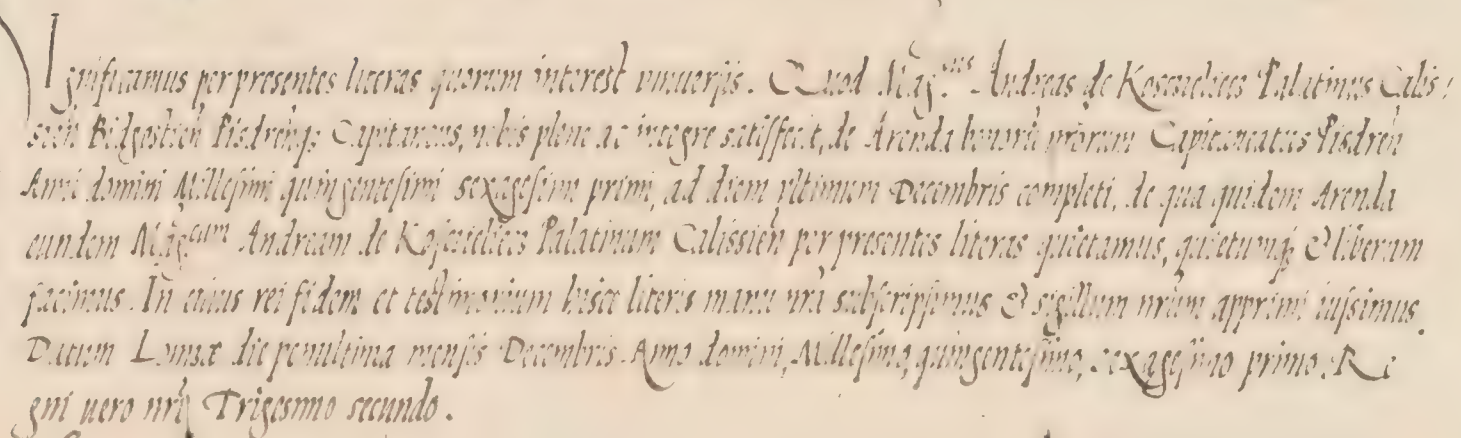 Significamus per presentes literas quorum interest vniuersis. Quod Mag.cus Andreas de Koscielecz Palatinus Calis:
sien̄ Bidgostien̄ Pisdren̄q; Capitaneus, nobis plene ac integre satisfecit, de Arenda bonorū nr̄orum Capitaneatus Pisdren̄
Anni domini Millesimi quingentesimi sexagesimi primi, ad diem vltimum Decembris completi, de qua quidem Arenda
eundem Mag.cum Andream de Koscielecz Palatinum Calissien̄ per presentes literas quietamus, quietumq; & liberum
facimus. In cuius rei fidem et testimonium hisce literis manu nr̄a subscripsimus & sigillum nr̄um apprimi iussimus.
Datum Lomzæ die penultima mensis Decembris Anno domini, Millesimo, quingentesimo, sexagesimo primo. Re
gni uero nr̄i Trigesimo secundo.